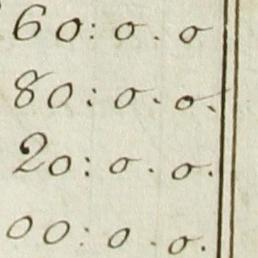 60: o. o
80: o. o.
20: o. o.
00: o. o.